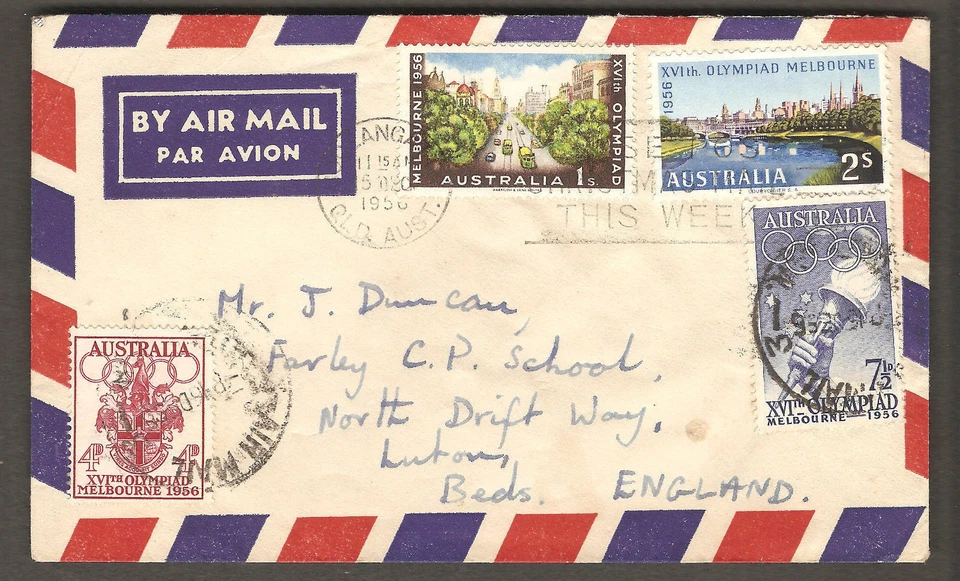 BY AIR MAIL
PAR AVION
MELBOURNE 1956
XVIth OLYMPIAD
AUSTRALIA 1s.
XVIth. OLYMPIAD MELBOURNE
1956
AUSTRALIA 2s
1956
QLD. AUST.
THIS WEEK
AUSTRALIA
7½D
XVITH OLYMPIAD
MELBOURNE 1956
Mr. J. Duncan,
Farley C.P. School,
North Drift Way,
Luton,
Beds. ENGLAND.
AUSTRALIA
4D 4D
XVITH OLYMPIAD
MELBOURNE 1956
AIR MAIL